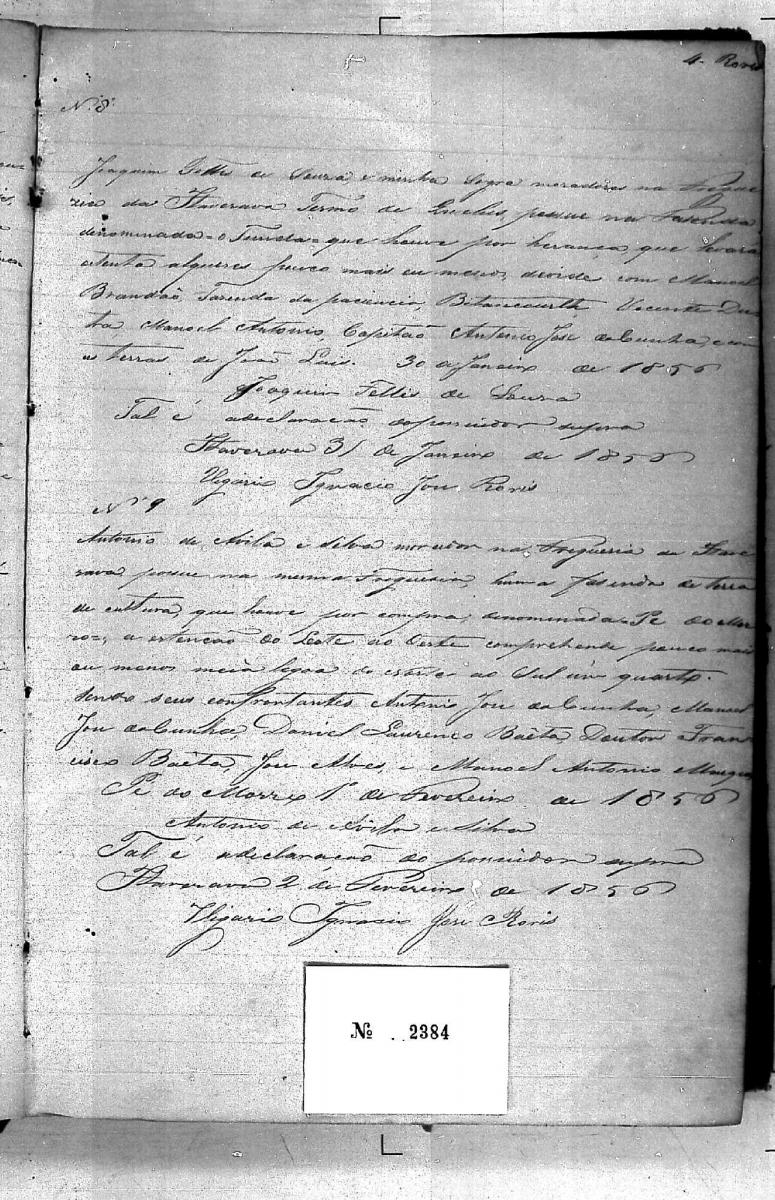 4. Roris
N. 8.
Joaquim Fellis de Souza, e minha Sogra moradores na Fregue
zia da Itaverava Termo de Queluz, possue na Fasenda
denominada = o Tunda = que houve por herança, que levará
oitenta alqueres pouco mais ou menos, devide com Manoel
Brandão, Fazenda da paciencia, Bitancourth Vicente Du
tra Manoel Antonio, Capitão Antonio José da Cunha, e com
as terras de João Luis. 30 de Janeiro de 1856
Joaquim Fellis de Souza
Tal é a declaração do possuidor supra
Itaverava 31 de Janeiro de 1856
Vigario Ignacio José Roris
Nº 9
Antonio de Avila e Silva morador na Fregueria de Itave
rava possue na mesma Fregueria, huma fasenda de terra
de cultura, que houve por compra, denominada = Pé do Mor
ro =, a extenção do Leste ao Oeste comprehende pouco mais
ou menos meia legoa do Norte ao Sul um quarto.
Sendo seus confrontantes Antonio José da Cunha, Manoel
José da Cunha, Daniel Lourenço Baêta, Doutor Fran
cisco Baêta, José Alves, e Manoel Antonio
Pé do Morro 1º de Fevereiro de 1856
Antonio de Avila e Silva
Tal é a declaração do possuidor supra
Itaverava 2 de Fevereiro de 1856
Vigario Ignacio José Roris
Nº 2384